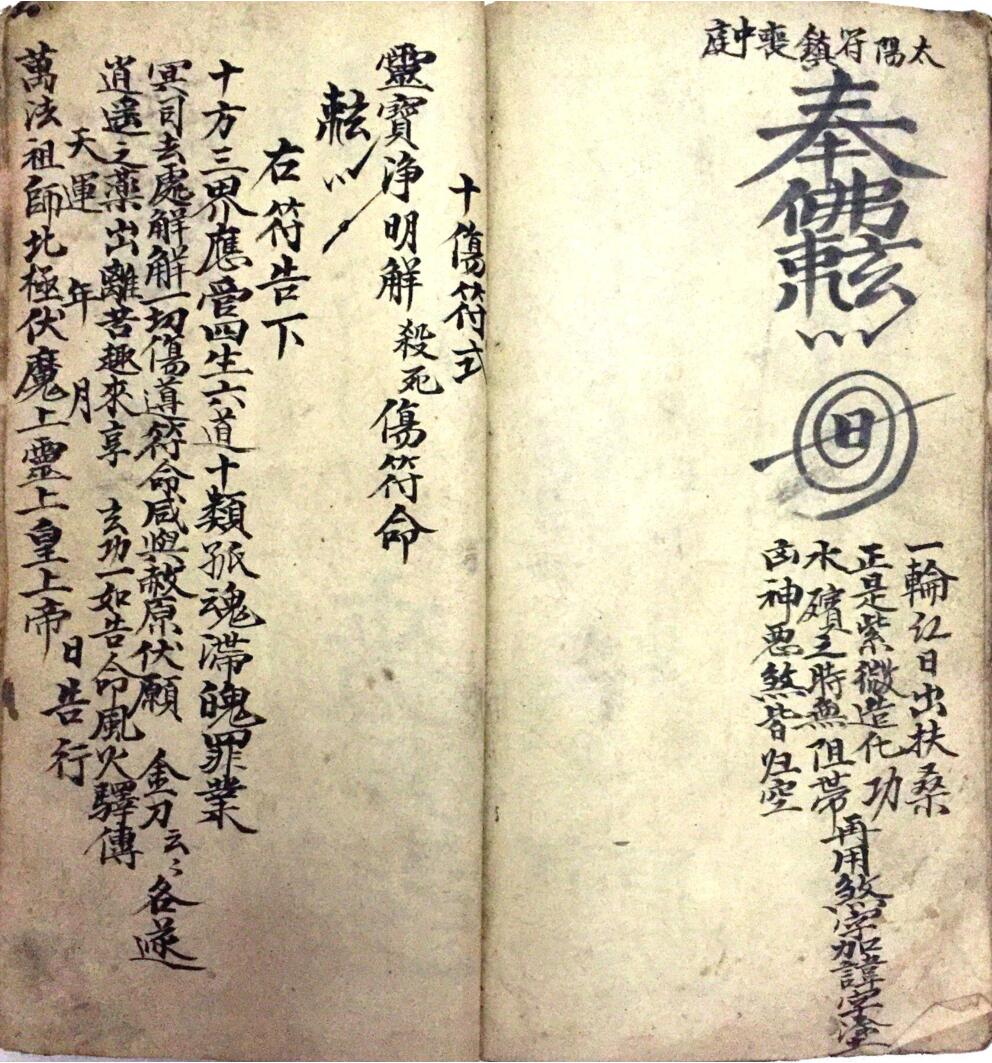 太陽符鎮喪中庭
奉佛
日
一輪红日出扶桑
正是紫微造化功
水殯之時無阻帶再用煞字加諱字塗
凶神惡煞皆归空
十傷符式
靈寶淨明解殺死傷符命
右符告下
十方三界應管四生六道十類孤魂滯魄罪業
冥司去處解解一切傷導符命咸與赦原伏願 金刀云々各遂
逍遙之藥出離苦趣來享 玄功一如告命風火驛傳
天運 年 月 日告行
萬法祖師北極伏魔上靈上皇上帝